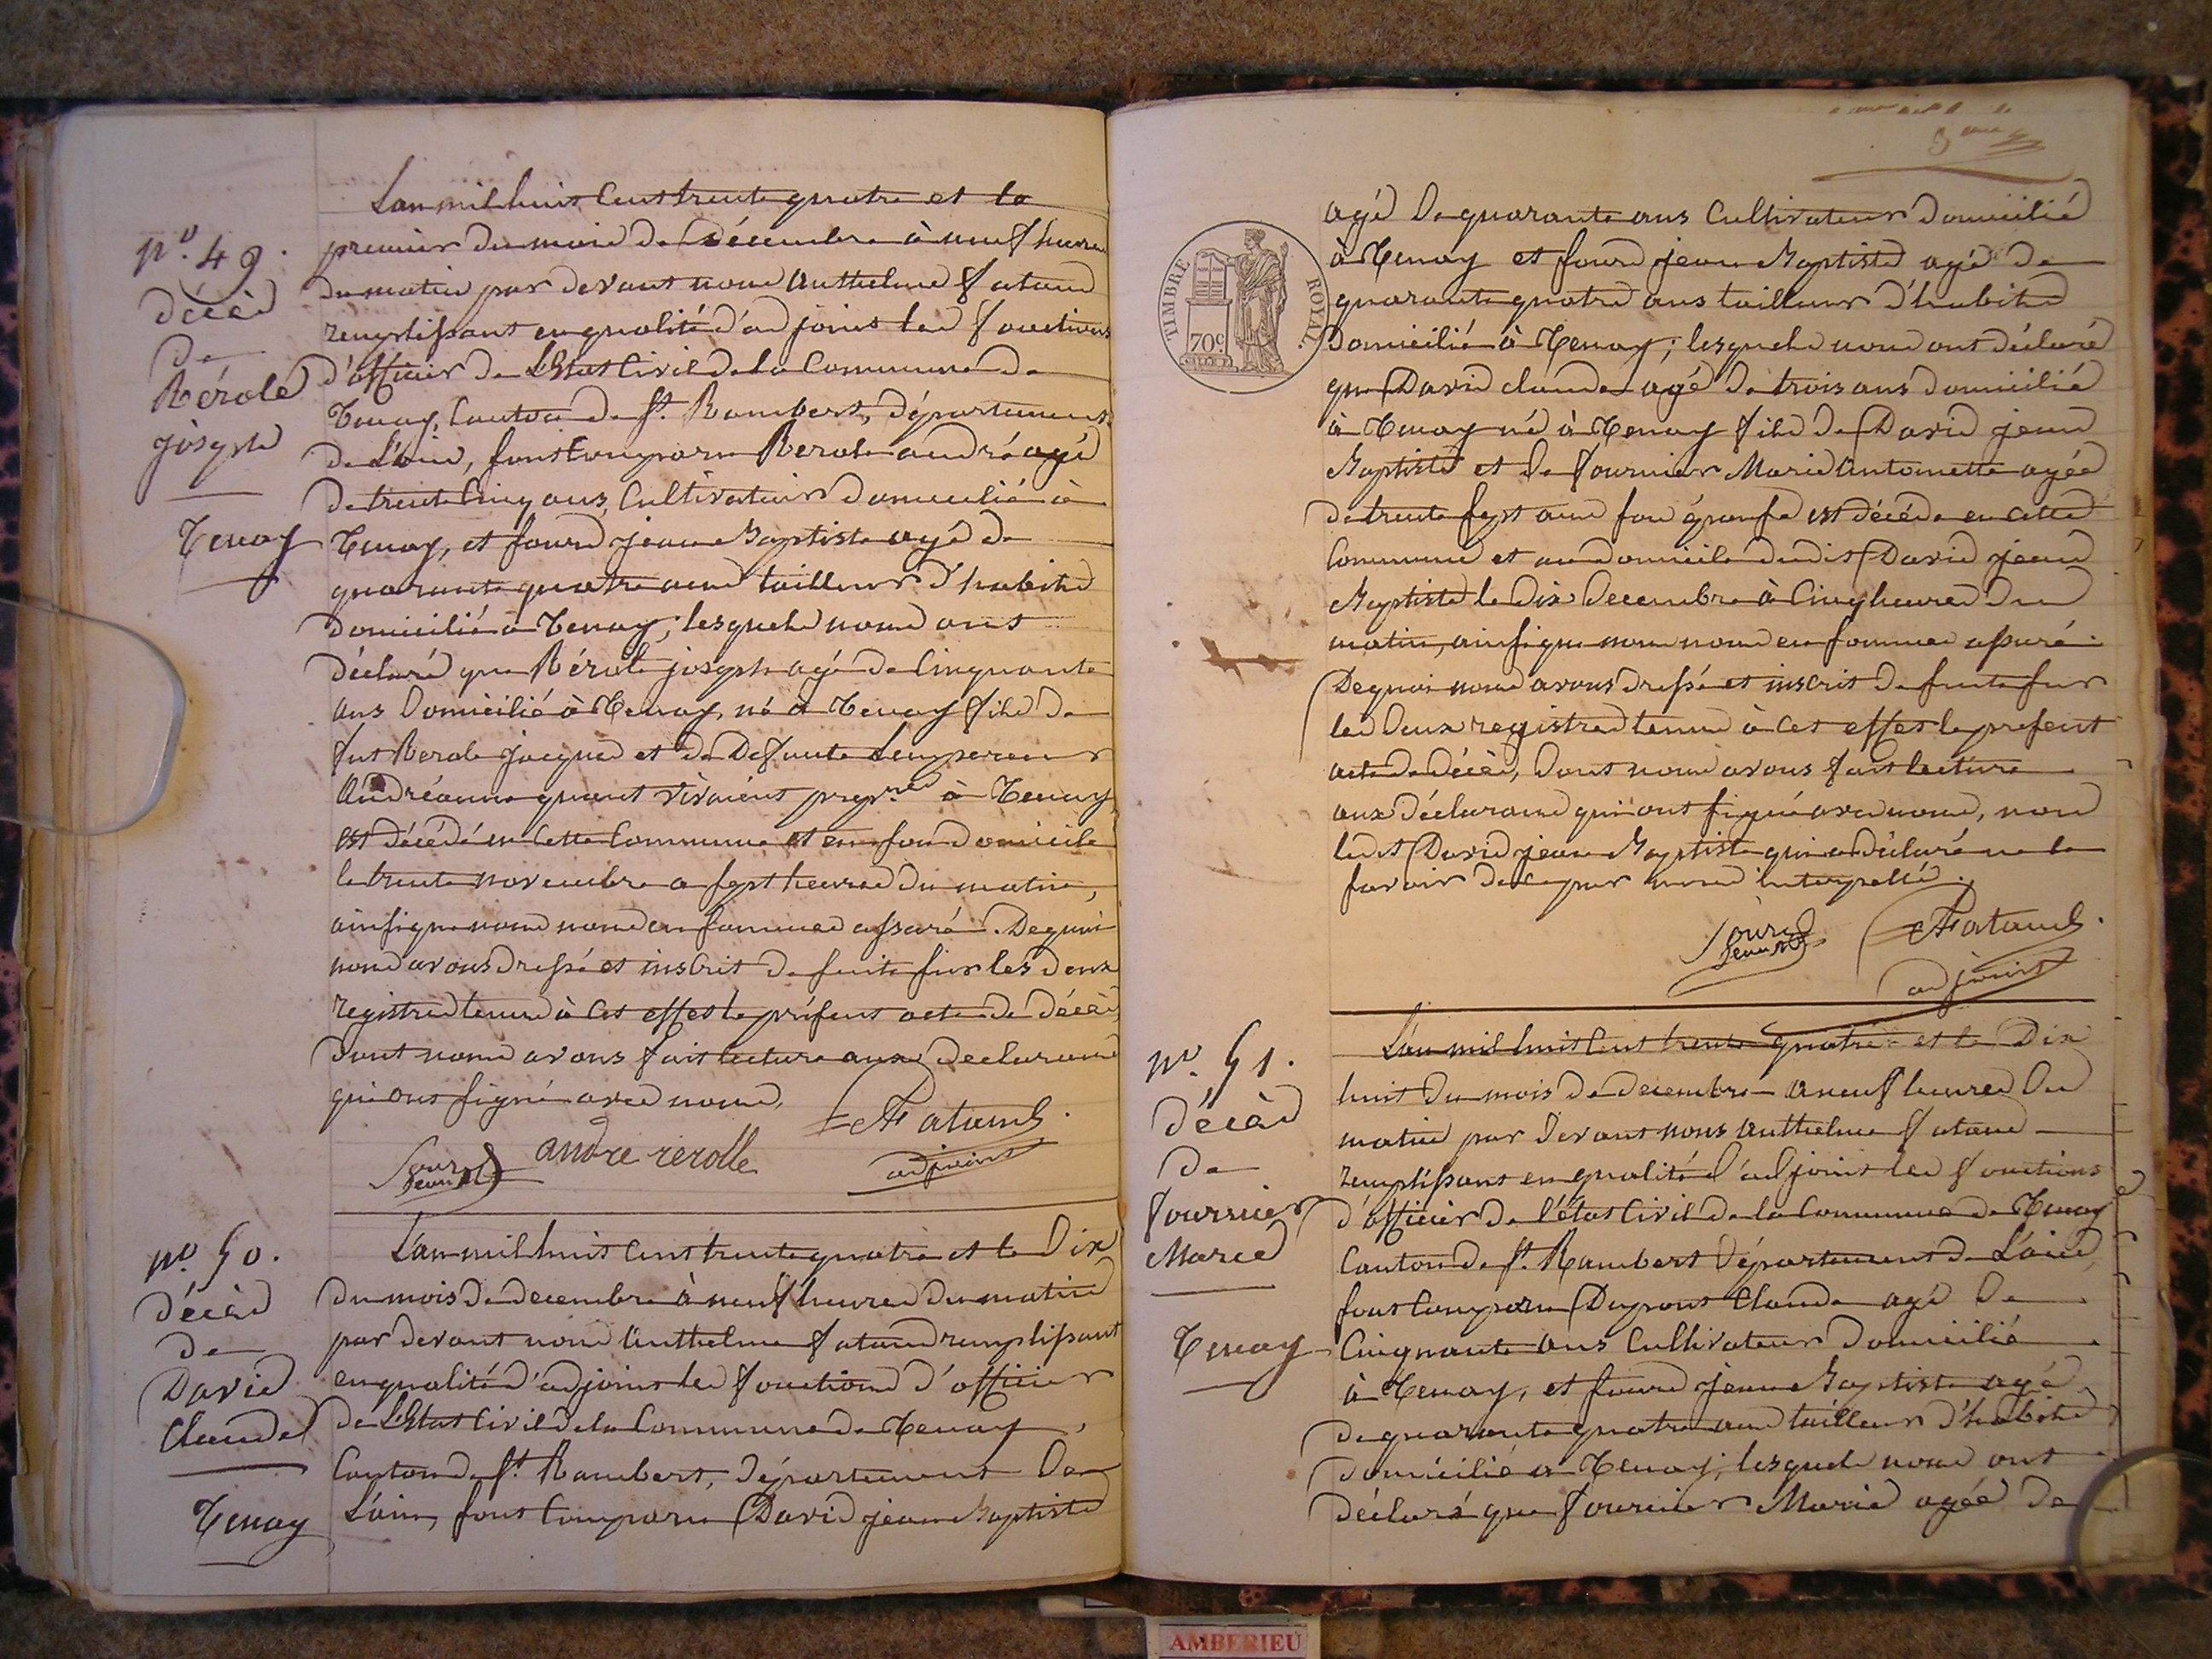 nº. 49.
décès
de
Rérole
joseph
Tenay
L'an mil huit cent trente quatre et le
premier du mois de décembre à neuf heures
du matin par devant nous Anthelme fatand
remplissant en qualité d'adjoint les fonctions
d'officier de L'Etat Civil de la Commune de
Tenay, Canton de St. Rambert, département
de L'ain, sont Comparu Rerole andré agé
de trente Cinq ans, Cultivateur domicilié à
Tenay, et sourd jean Baptiste agé de
quarante quatre ans tailleur d'habits
domicilié à Tenay; lesquels nous ont
déclaré que Rérole joseph agé de Cinquante
ans domicilié à Tenay, né à Tenay fils de
fut Rerole jacques et de Defunte Lempereur
Andréanne quant vivaient à Tenay
est décédé en Cette Commune et en son domicile
le trente novembre a sept heures du matin,
ainsi que nous nous en sommes assuré. De quoi
nous avons dressé et inscrit de suite sur les deux
registres tenus à Cet effet le présent acte de décès,
dont nous avons fait lecture aux declarans
qui ont signé avec nous.
Sourd Jean Bte
andre rerolle
A Fatand
adjoint
nº. 50.
décès
de
David
Claude
Tenay
L'an mil huit Cent trente quatre et le Dix
du mois de decembre à neuf heures du matin
par devant nous Anthelme fatand remplissant
en qualité d'adjoint les fonctions d'officier
de L'Etat Civil de la Commune de Tenay,
Canton de St. Rambert, département De
L'ain, sont Comparu David jean Baptiste
TIMBRE ROYAL.
70c
agé De quarante ans Cultivateur domicilié
à Tenay et sourd jean Baptiste agé de
quarante quatre ans tailleur d'habits
domicilié à Tenay; lesquels nous ont déclaré
que David claude agé de trois ans domicilié
à Tenay né à Tenay fils de David jean
Baptiste et de fournier Marie Antoinette agée
de trente sept ans son épouse est décédé en cette
Commune et au domicile dudit David jean
Baptiste le dix Decembre à Cinq heures du
matin, ainsi que nous nous en sommes assuré.
De quoi nous avons dressé et inscrit de suite sur
les deux registres tenus à Cet effet le present
acte de décès, dont nous avons fait lecture
aux déclarans qui ont signé avec nous, non
ledit David jean Baptiste qui a déclaré ne le
savoir de ce par nous interpellé.
Sourd Jean Bte
A Fatand.
adjoint
nº. 51.
décès
de
fournier
Marie
Tenay
L'an mil huit Cent trente quatre et le Dix
huit du mois de decembre à neuf heures Du
matin par Devant nous Anthelme fatand
remplissant en qualité d'adjoint les fonctions
d'officier de l'état Civil de la Commune de Tenay
Canton de St. Rambert Département de L'ain
sont Comparu Dupont Claude agé De
Cinquante ans Cultivateur domicilié
à Tenay, et sourd jean Baptiste agé
de quarante quatre ans tailleur d'habits
domicilié à Tenay, lesquels nous ont
déclaré que fournier Marie agée de
AMBERIEU